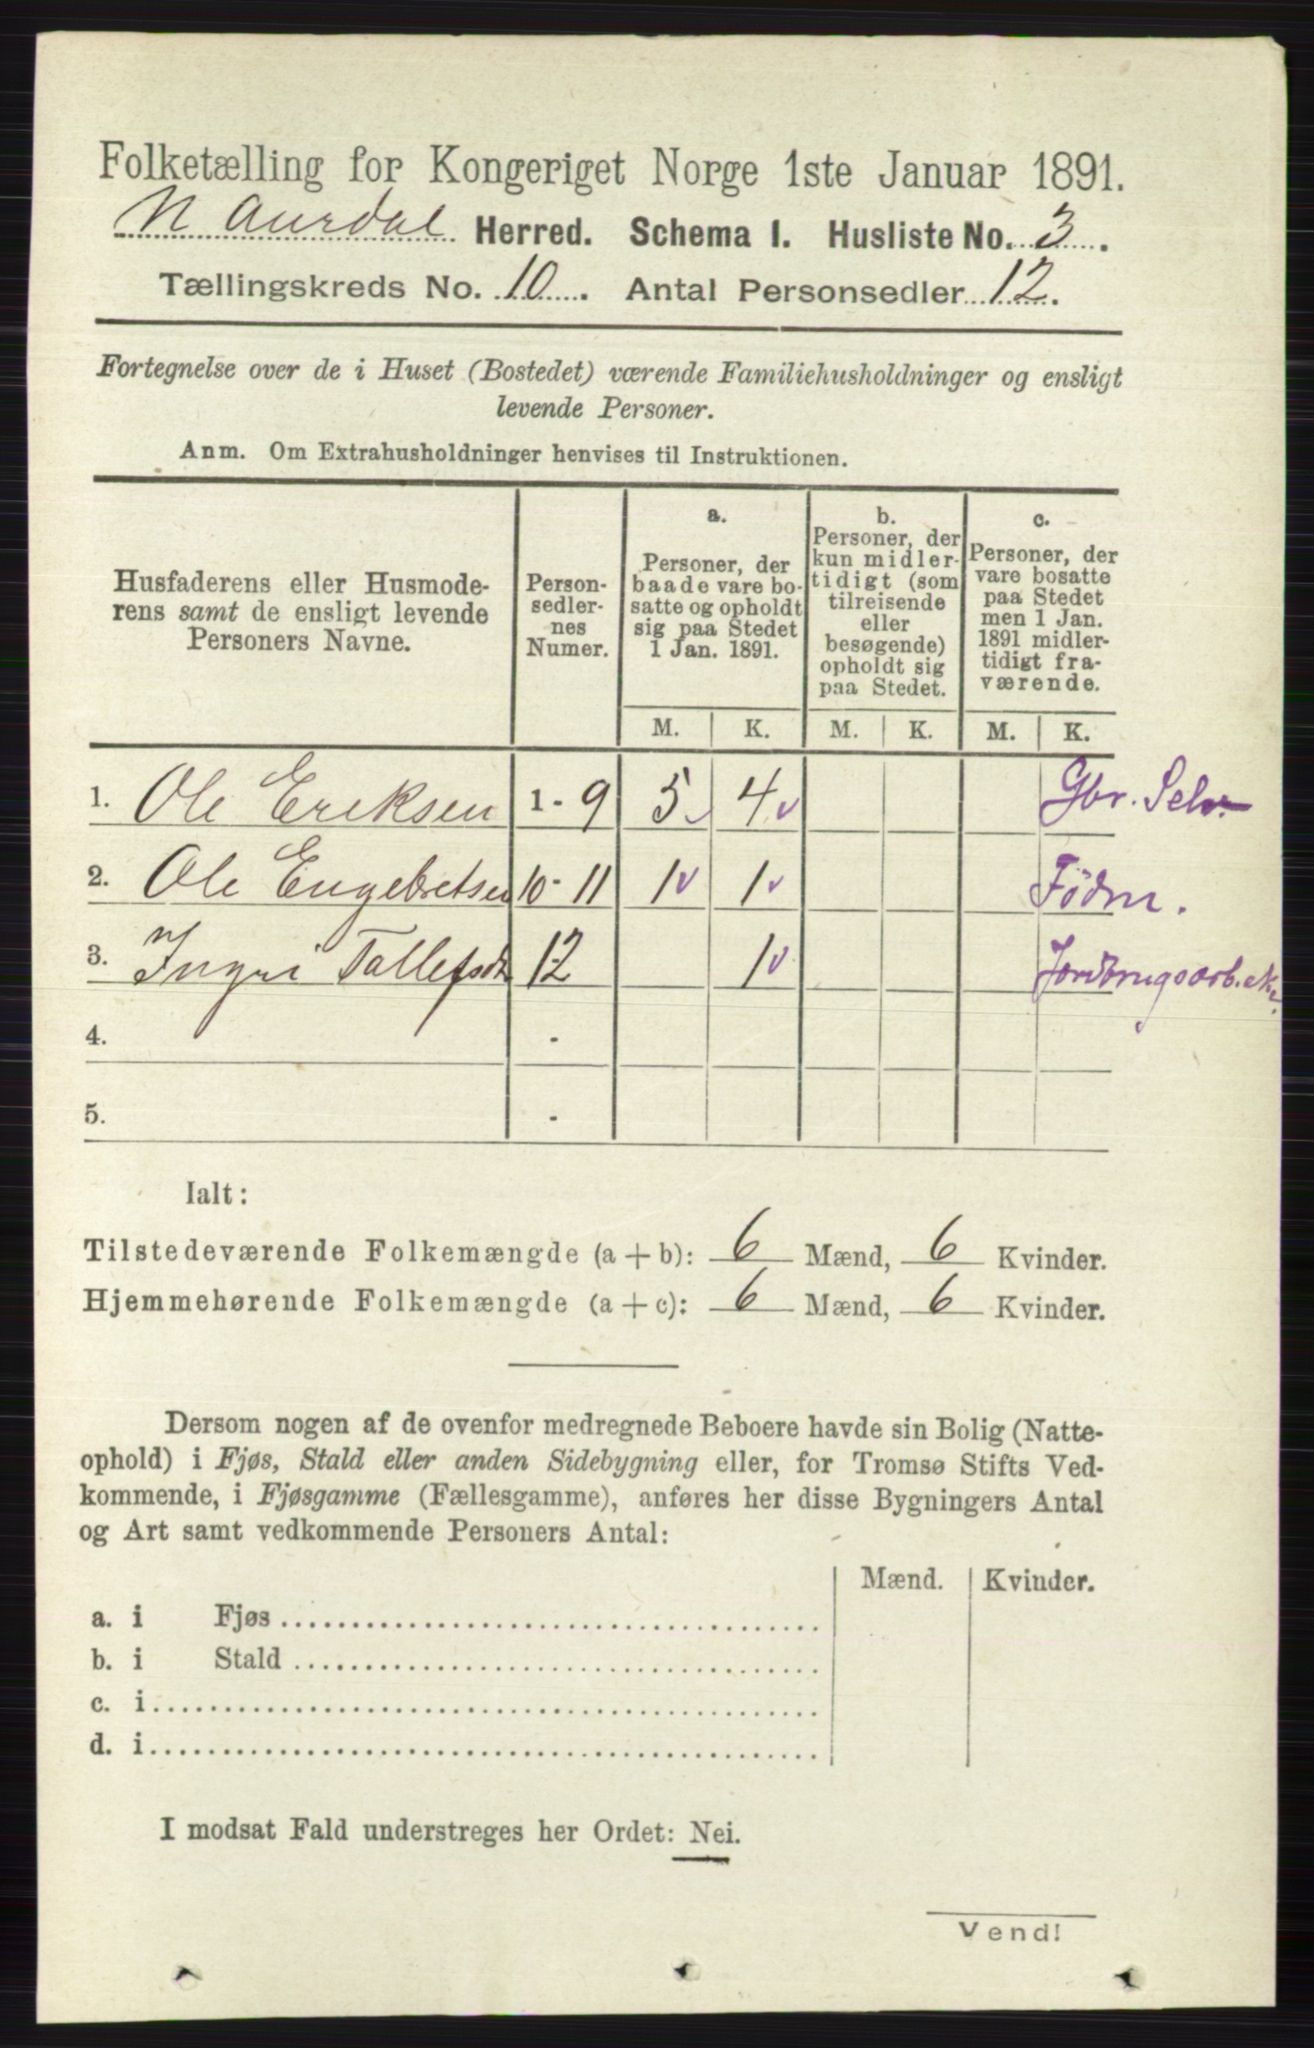 Folketælling for Kongeriget Norge 1ste Januar 1891.
N Aurdal Herred. Schema I. Husliste No. 3.
Tællingskreds No. 10. Antal Personsedler 12.
Fortegnelse over de i Huset (Bostedet) værende Familiehusholdninger og ensligt
levende Personer.
Anm. Om Extrahusholdninger henvises til Instruktionen.
Husfaderens eller Husmode-
rens samt de ensligt levende
Personers Navne.
Person-
sedler-
nes
Numer.
a.
Personer, der
baade vare bo-
satte og opholdt
sig paa Stedet
1 Jan. 1891.
b.
Personer, der
kun midler-
tidigt (som
tilreisende
eller
besøgende)
opholdt sig
paa Stedet.
c.
Personer, der
vare bosatte
paa Stedet
men 1 Jan.
1891 midler-
tidigt fra-
værende.
M. K. M. K. M. K.
1. Ole Eriksen 1 - 9 5 4 Gbr. Selv.
2. Ole Engebretsen 10 - 11 1 1 Födm.
3. Ingri Tollefsdt 12 1 Jordbrugsarb.
4. -
5. -
Ialt:
Tilstedeværende Folkemængde (a + b): 6 Mænd, 6 Kvinder.
Hjemmehørende Folkemængde (a + c): 6 Mænd, 6 Kvinder.
Dersom nogen af de ovenfor medregnede Beboere havde sin Bolig (Natte-
ophold) i Fjøs, Stald eller anden Sidebygning eller, for Tromsø Stifts Ved-
kommende, i Fjøsgamme (Fællesgamme), anføres her disse Bygningers Antal
og Art samt vedkommende Personers Antal:
Mænd. Kvinder.
a. i Fjøs
b. i Stald
c. i
d. i
I modsat Fald understreges her Ordet: Nei.
Vend!